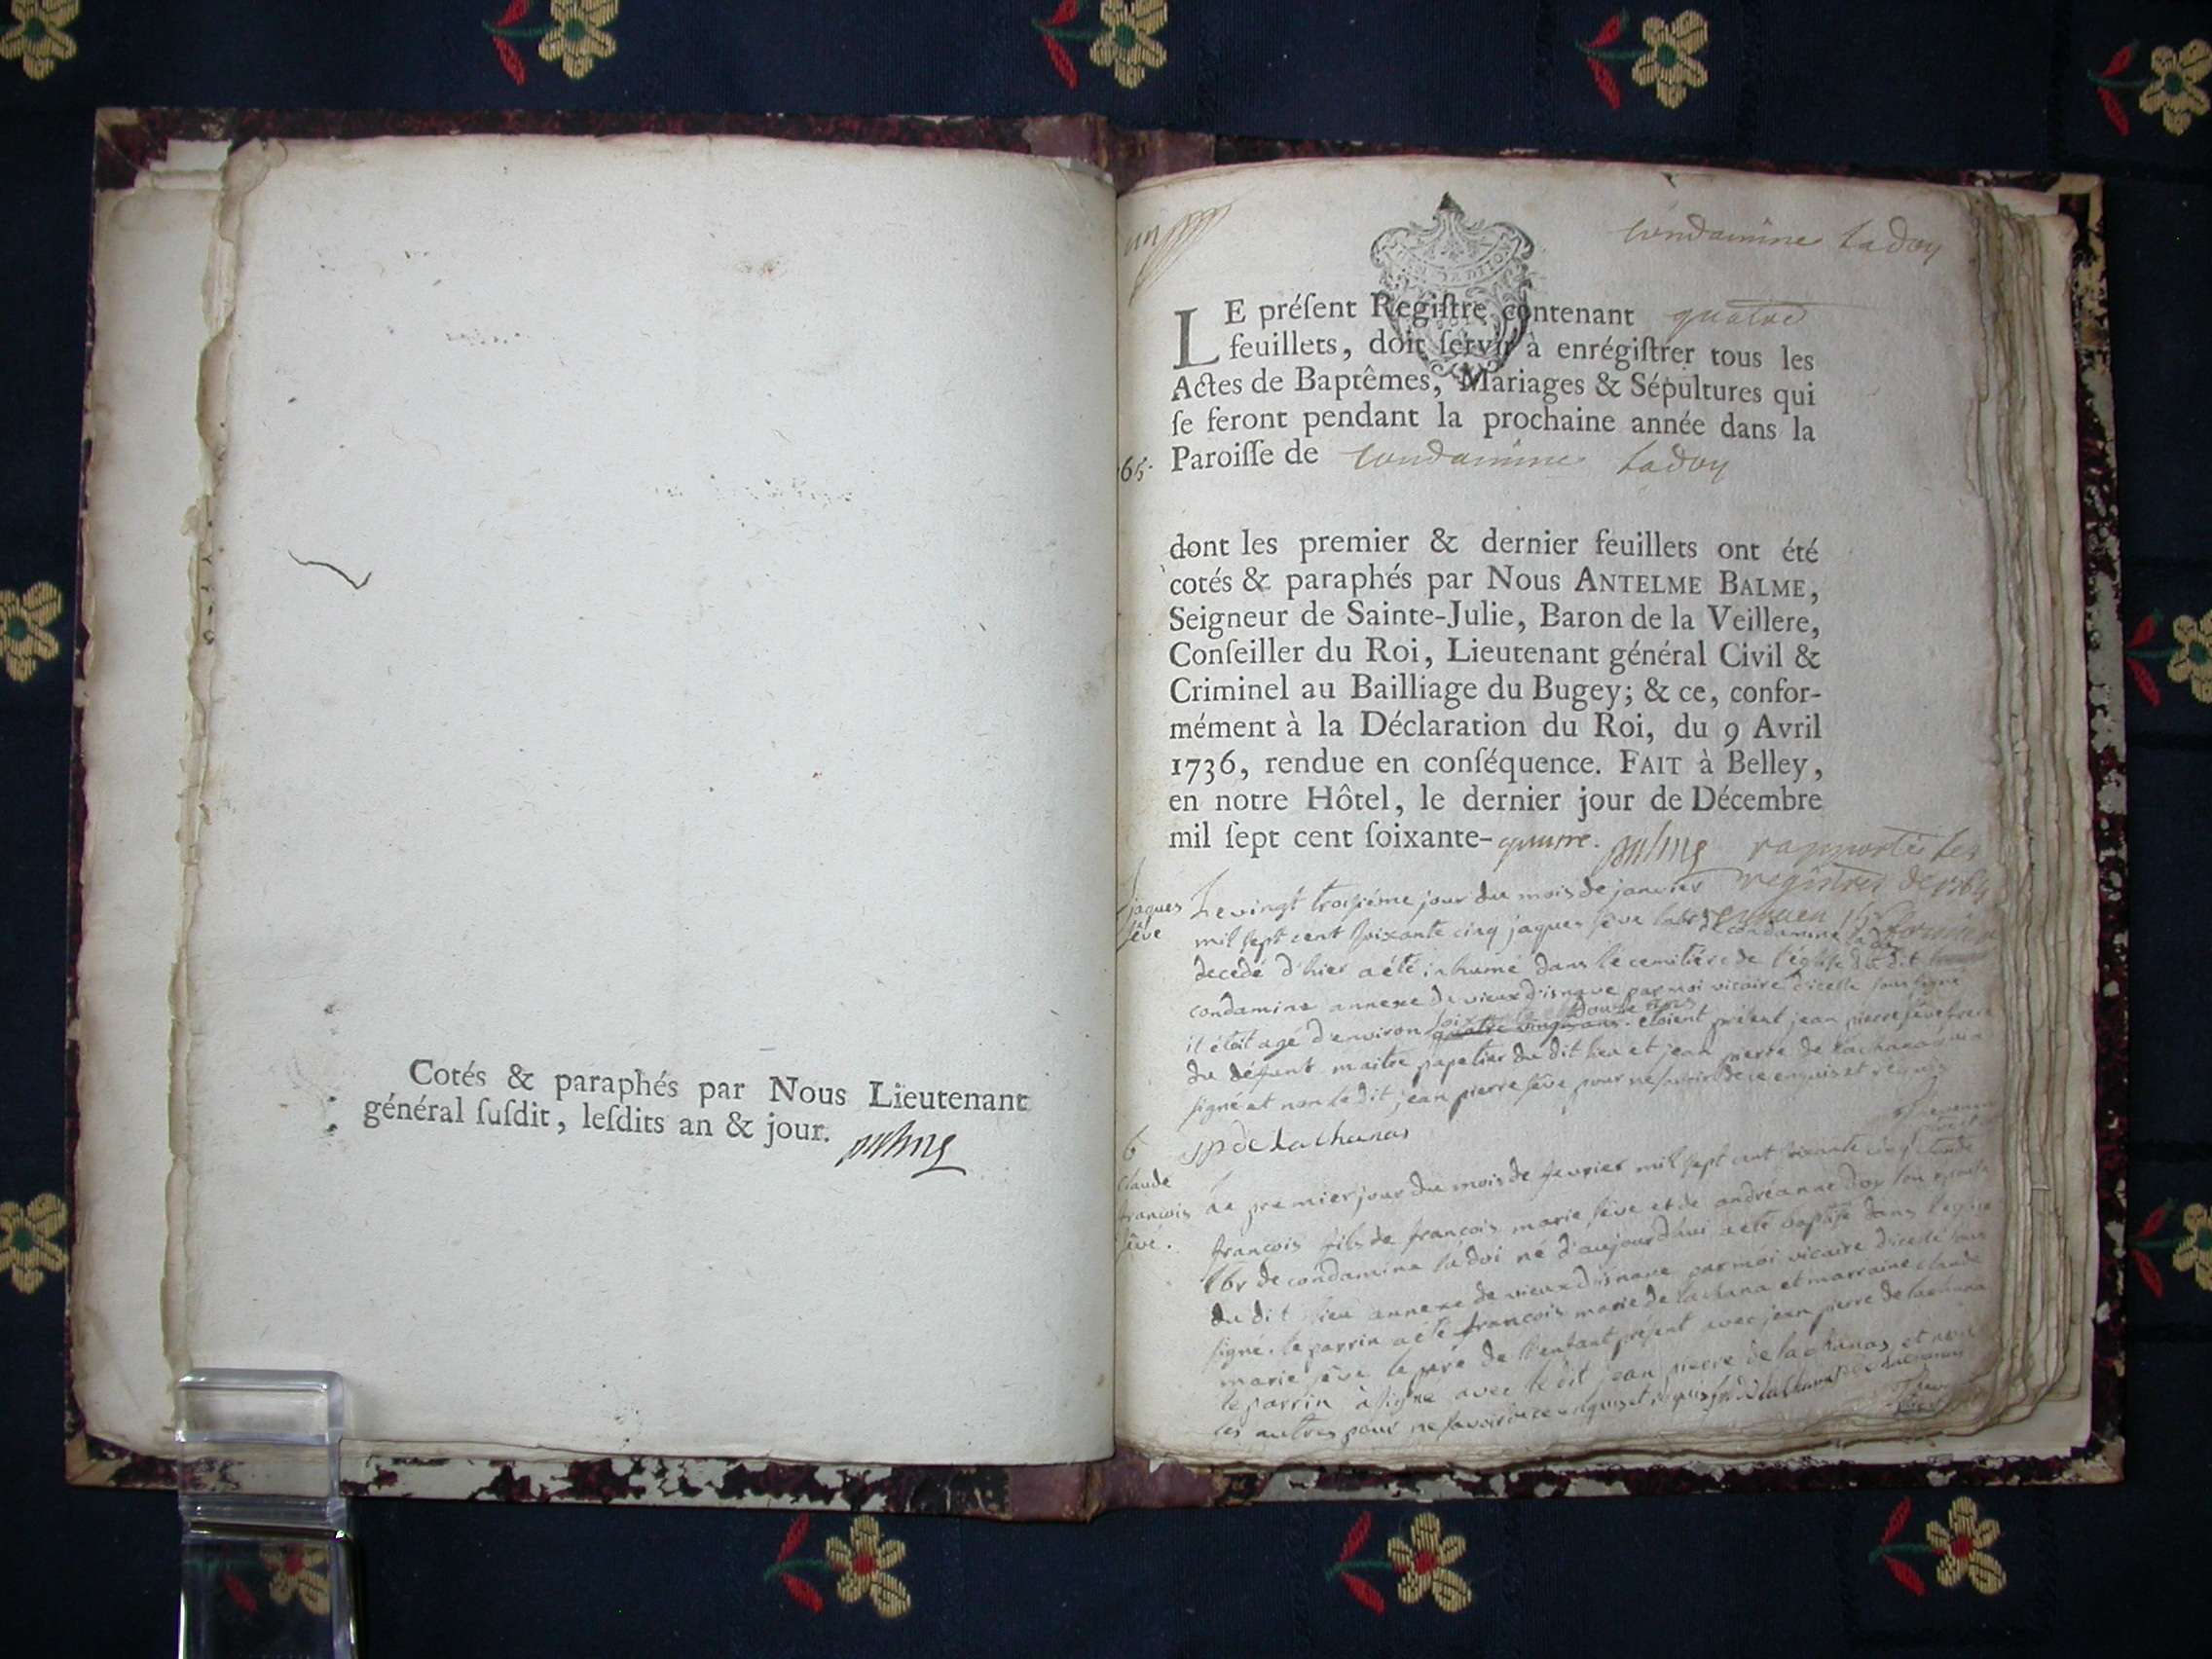 Cotés & paraphés par Nous Lieutenant
général ſuſdit, leſdits an & jour.
un
condamine ladoy
LE préſent Regiſtre contenant quatre
feuillets, doit ſervir à enrégiſtrer tous les
Actes de Baptêmes, Mariages & Sépultures qui
ſe feront pendant la prochaine année dans la
65. Paroiſſe de condamine ladoy
dont les premier & dernier feuillets ont été
cotés & paraphés par Nous ANTELME BALME,
Seigneur de Sainte-Julie, Baron de la Veillere,
Conſeiller du Roi, Lieutenant général Civil &
Criminel au Bailliage du Bugey; & ce, confor-
mément à la Déclaration du Roi, du 9 Avril
1736, rendue en conſéquence. FAIT à Belley,
en notre Hôtel, le dernier jour de Décembre
mil ſept cent ſoixante-quatre. rapporté les
registres de 1764
jaques
sêve
Le vingt troisiéme jour du mois de janvier
mil sept cent soixante cinq jaques sêve de condamine la doy
decédé d'hier a été inhumé dans le cemitiére de l'église du dit
condamine annexe de vieux d'isnave par moi vicaire d'icelle soussigné
il étoit agé d'environ soixante et douze ans étoient présent jean pierre sêve frere
du défunt maitre papetier du dit lieu et jean pierre de lachanas qui a
signé et non le dit jean pierre sêve pour ne savoir de ce enquis et requis
jp de lachanas
6
claude
francois
sêve.
Le premier jour du mois de fevrier mil sept cent soixante cinq claude
francois fils de francois marie sêve et de andréanne
lbr de condamine la doi né d'aujourd'hui a été baptisé dans l'eglise
du dit lieu annexe de vieux d'isnave par moi vicaire d'icelle sous
signé. le parrin a été francois marie de lachana et marraine claude
marie sêve le pere de l'enfant présent avec jean pierre de lachana
le parrin a signé avec le dit jean pierre de lachanas et non
les autres pour ne savoir de ce enquis et requis